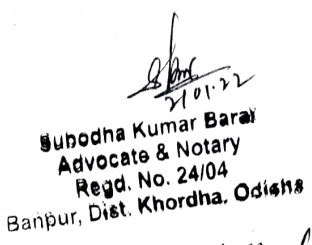 21.01.22
Subodha Kumar Baral
Advocate & Notary
Regd. No. 24/04
Banpur, Dist. Khordha, Odisha